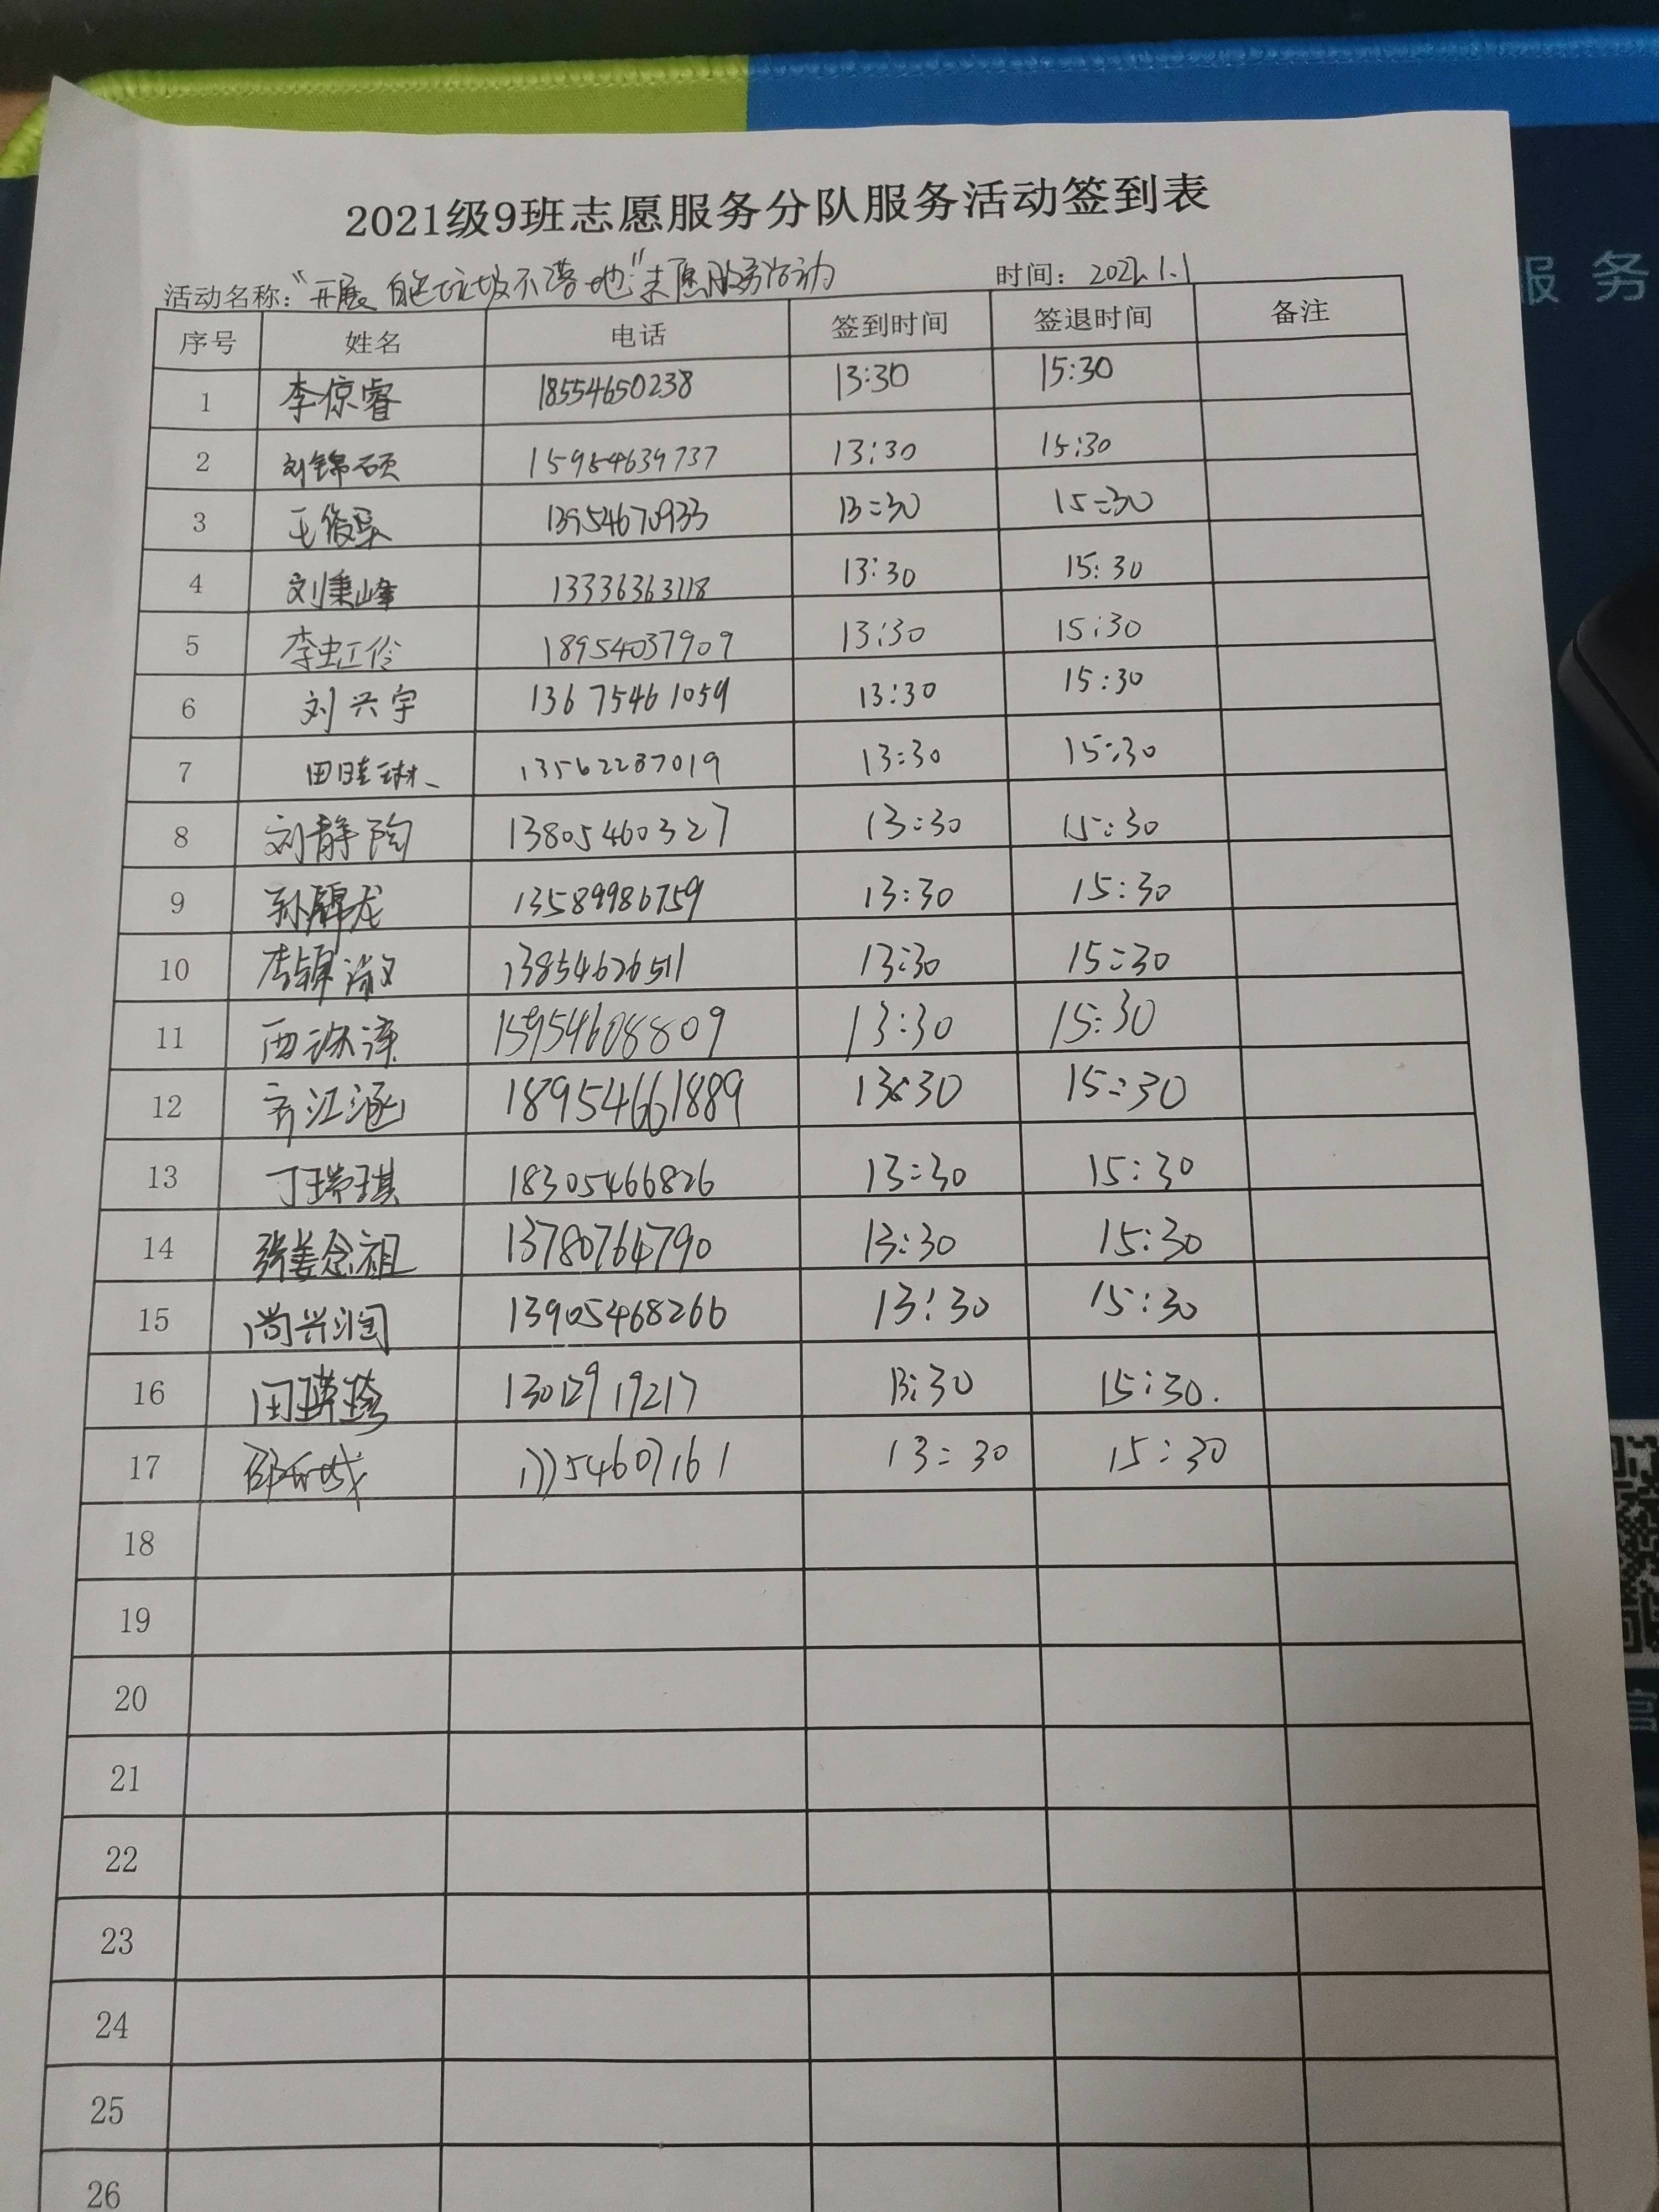 2021级9班志愿服务分队服务活动签到表
活动名称:“开展 能垃圾不落地”志愿服务活动 时间: 2022.1.1
序号 姓名 电话 签到时间 签退时间 备注
1 李倞睿 18554650238 13:30 15:30
2 刘锦硕 15954639737 13:30 15:30
3 王俊昊 13954670933 13:30 15:30
4 刘秉峰 13336363118 13:30 15:30
5 李虹伶 18954037909 13:30 15:30
6 刘兴宇 13675461059 13:30 15:30
7 田琳 13562287019 13:30 15:30
8 刘静陶 13805460327 13:30 15:30
9 孙锦龙 13589986759 13:30 15:30
10 李 13854626511 13:30 15:30
11 西 15954608809 13:30 15:30
12 齐江涵 18954661889 13:30 15:30
13 丁瑞琪 18305466826 13:30 15:30
14 张姜念祖 13780764790 13:30 15:30
15 尚兴润 13905468266 13:30 15:30
16 田瑛琦 13012919217 13:30 15:30.
17 邵 54607161 13:30 15:30
18
19
20
21
22
23
24
25
26
服务
官